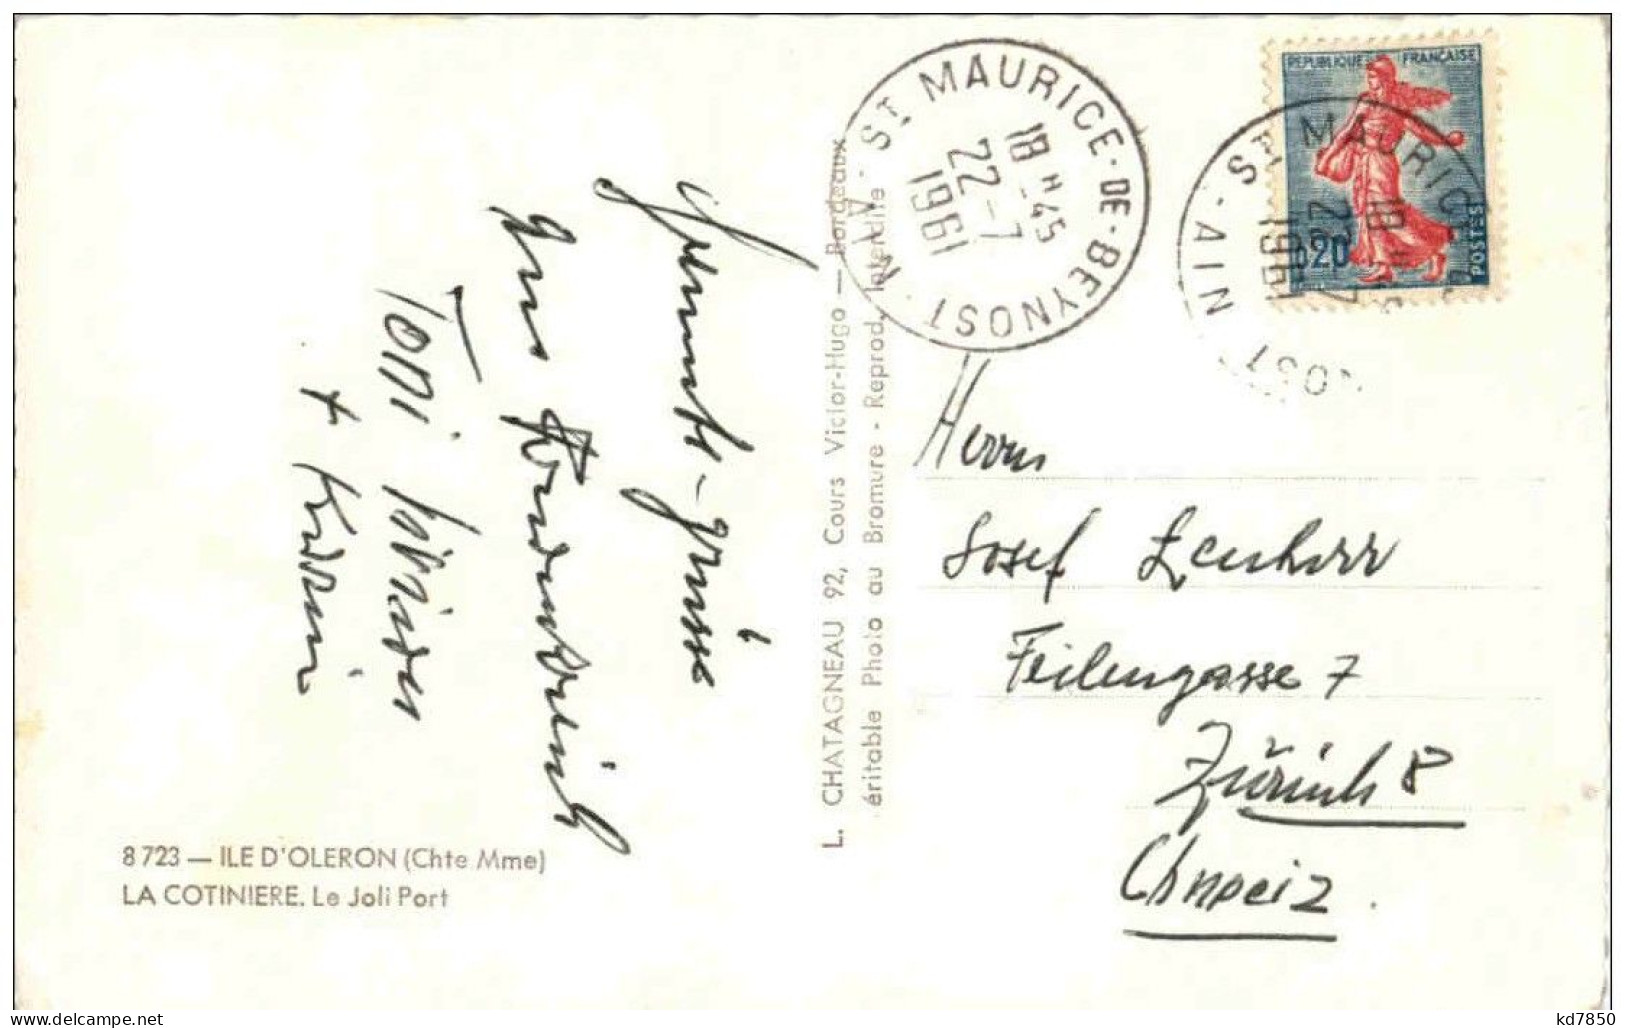 8 723 — ILE D'OLERON (Chte Mme)
LA COTINIERE. Le Joli Port
L. CHATAGNEAU 92, Cours Victor-Hugo — Bordeaux
éritable Photo au Bromure - Reprod. Interdite
aus
Toni
+
ST MAURICE-DE-BEYNOST
AIN
18 H 45
22-7
1961
REPUBLIQUE FRANÇAISE
0,20
POSTES
ST MAURICE
OST
AIN
18
22 7
1961
Herrn
Josef
Feilengasse 7
Zürich 8
Schweiz
kd7850